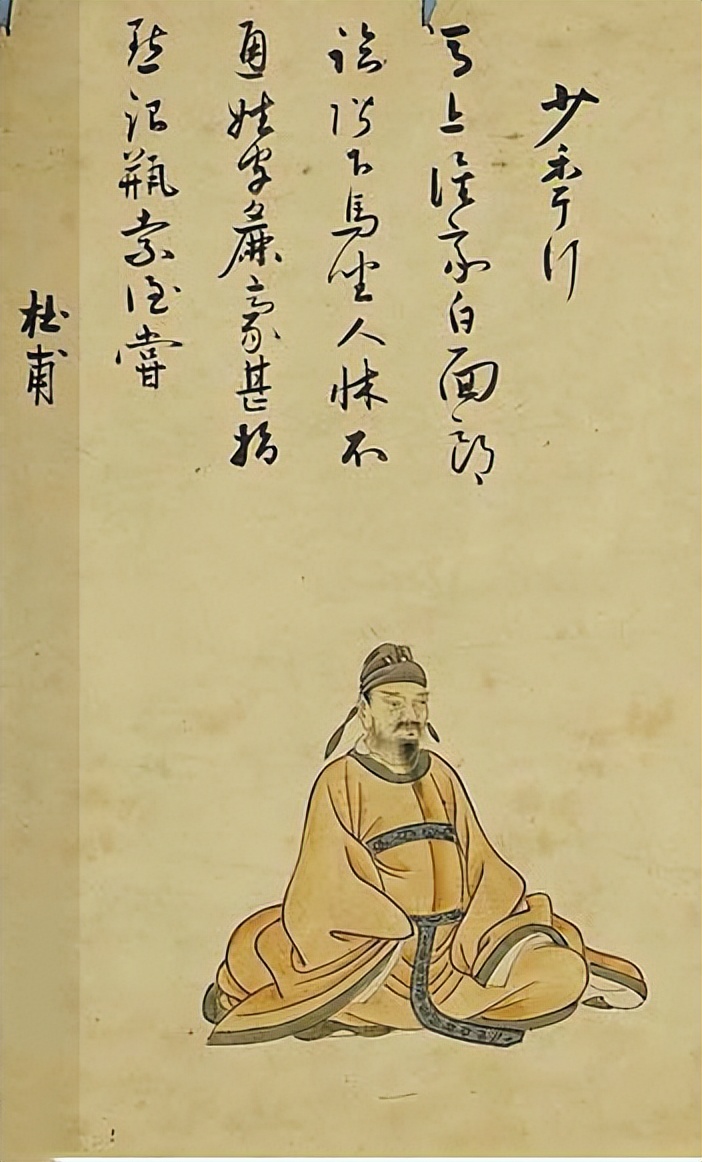 少秊行
馬上誰家白面郎
臨階下馬坐人牀不
通姓字麁豪甚指
點銀瓶索酒嘗
杜甫